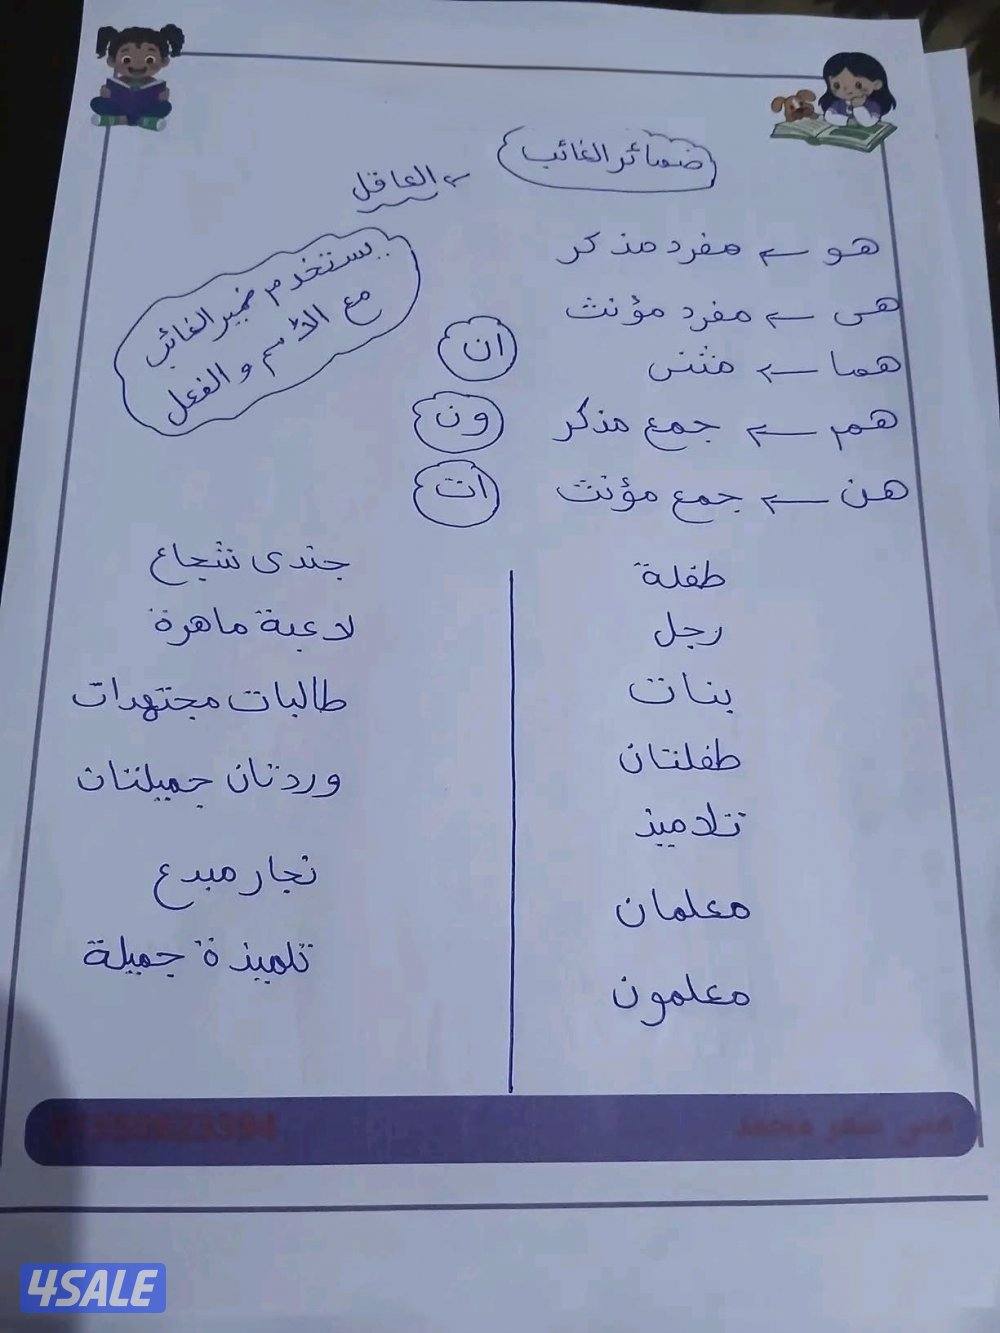 ضمائر الغائب
← العاقل
هو ← مفرد مذكر
هى ← مفرد مؤنث
هما ← مثنى
ان
هم ← جمع مذكر
ون
هن ← جمع مؤنث
ات
يستخدم ضمير الغائب
مع الاسم والفعل
طفلة
رجل
بنات
طفلتان
تلاميذ
معلمان
معلمون
جندى شجاع
لاعبة ماهرة
طالبات مجتهدات
وردتان جميلتان
نجار مبدع
تلميذة جميلة
4SALE